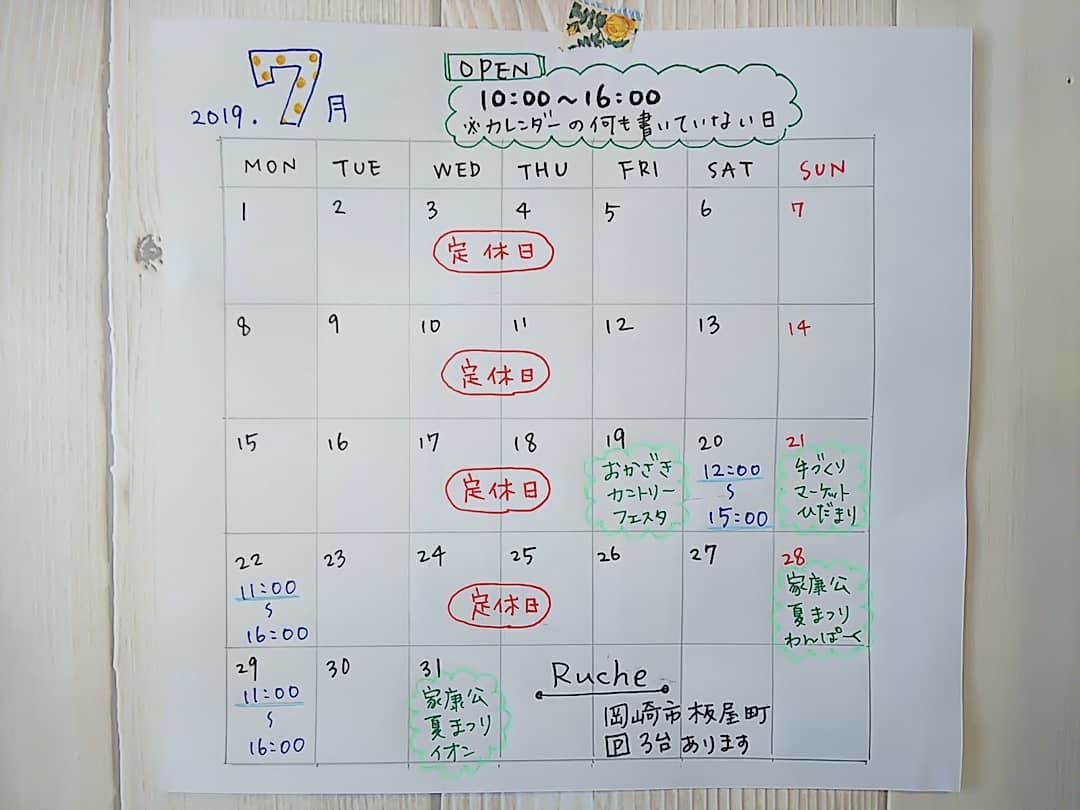 2019. 7月
OPEN
10:00～16:00
※カレンダーの何も書いていない日
MON TUE WED THU FRI SAT SUN
1 2 3 4 5 6 7
定休日
8 9 10 11 12 13 14
定休日
15 16 17 18 19 20 21
定休日
おかざき
カントリー
フェスタ
12:00
〜
15:00
手づくり
マーケット
ひだまり
22 23 24 25 26 27 28
11:00
〜
16:00
定休日
家康公
夏まつり
わんぱーく
29 30 31
11:00
〜
16:00
家康公
夏まつり
イオン
Ruche
岡崎市板屋町
P 3台あります